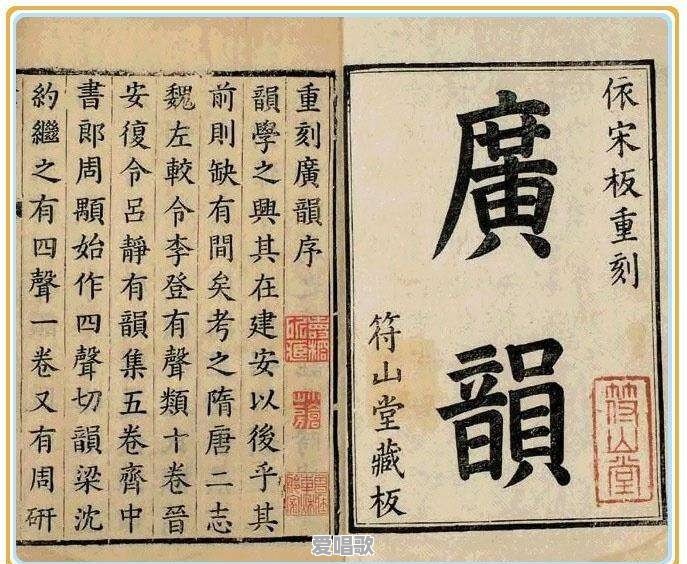 依宋板重刻
廣韻
符山堂藏板
符山堂
重刻廣韻序
韻學之興其在建安以後乎其
前則缺有間矣考之隋唐二志
魏左較令李登有聲類十卷晉
安復令呂靜有韻集五卷齊中
書郎周顒始作四聲切韻梁沈
約繼之有四聲一卷又有周研
爱唱歌